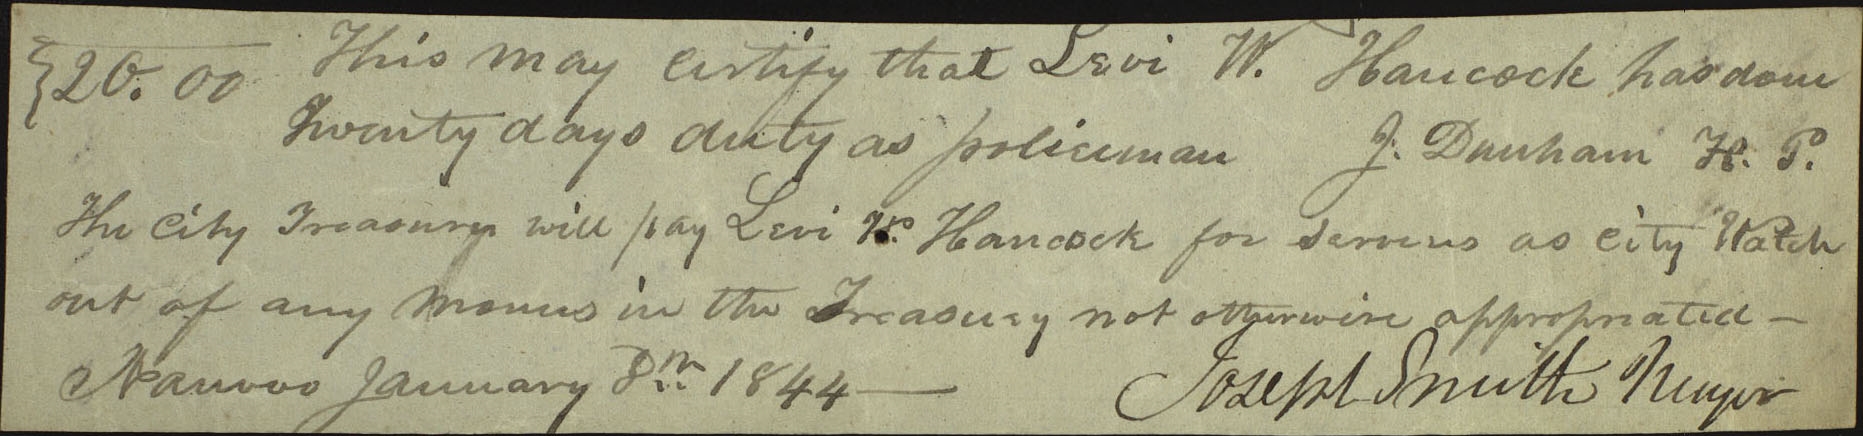 {20.00 This may certify that Levi W. Hancock has done
Twenty days duty as policeman J. Dunham H. P.
The City Treasury will pay Levi W. Hancock for servies as City Watch
out of any monies in the Treasury not otherwise appropriated —
Nauvoo January 8th 1844 — Joseph Smith Mayor